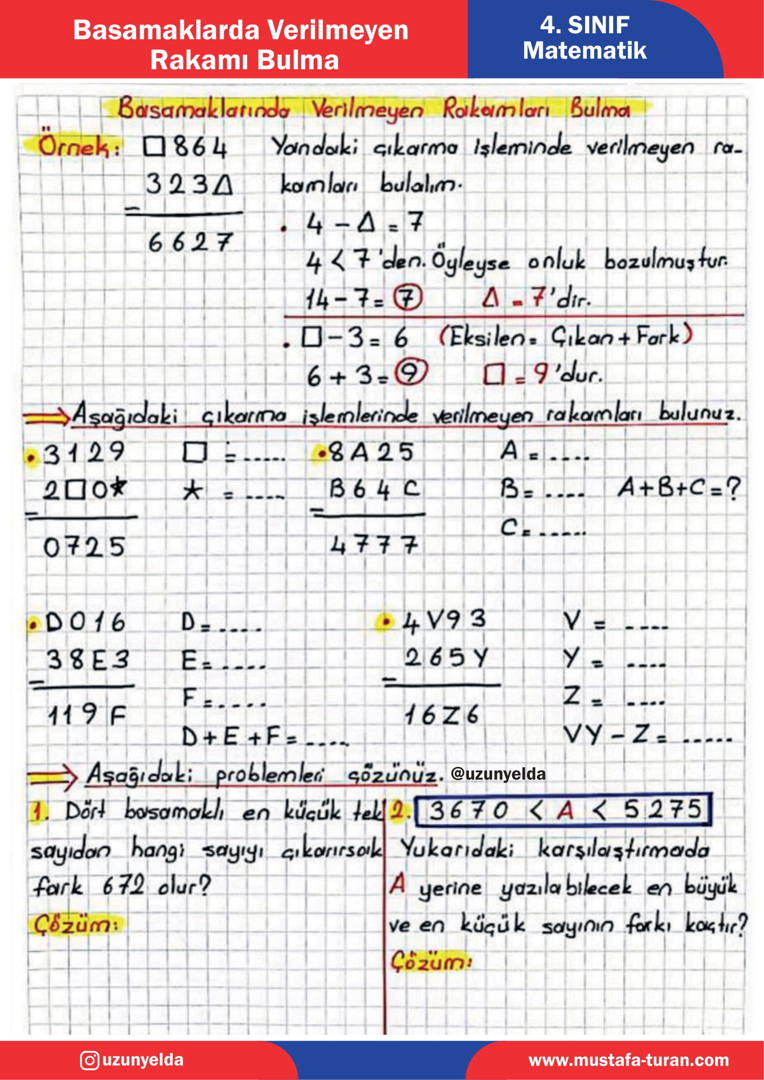 Basamaklarda Verilmeyen
Rakamı Bulma
4. SINIF
Matematik
Basamaklarında Verilmeyen Rakamları Bulma
Örnek: □864 Yandaki çıkarma işleminde verilmeyen ra-
323Δ kamları bulalım.
-
6627
. 4 - Δ = 7
4 < 7'den. Öyleyse onluk bozulmuştur.
14 - 7 = 7 Δ = 7'dir.
. □ - 3 = 6 (Eksilen = Çıkan + Fark)
6 + 3 = 9 □ = 9'dur.
⇒ Aşağıdaki çıkarma işlemlerinde verilmeyen rakamları bulunuz.
•3129 □ = ...... •8A25 A = ....
2□0* * = .... B64C B = .... A+B+C=?
- - C = .....
0725 4777
•D016 D = .... •4V93 V = ....
38E3 E = .... 265Y Y = ....
- F = ..... - Z = ....
119F D+E+F = .... 16Z6 VY - Z = .....
⇒ Aşağıdaki problemleri çözünüz. @uzunyelda
1. Dört basamaklı en küçük tek
sayıdan hangi sayıyı çıkarırsak
fark 672 olur?
Çözüm:
2. 3670 < A < 5275
Yukarıdaki karşılaştırmada
A yerine yazılabilecek en büyük
ve en küçük sayının farkı kaçtır?
Çözüm:
uzunyelda
www.mustafa-turan.com